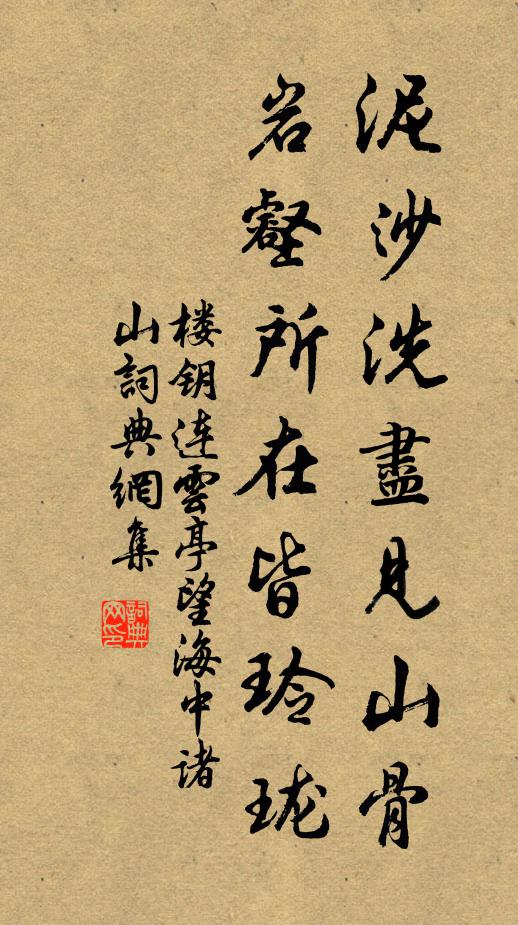 泥沙洗盡見山骨
岩壑所在皆玲珑
楼钥连雲亭望海中诸
山詞典網集
詞典网印